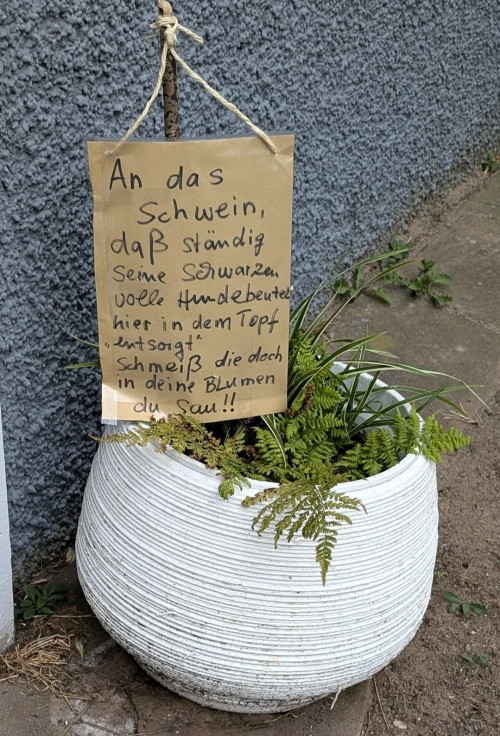 An das
Schwein,
daß ständig
seine Schwarzen
volle Hundebeutel
hier in dem Topf
„entsorgt"
Schmeiß die doch
in deine Blumen
du Sau!!